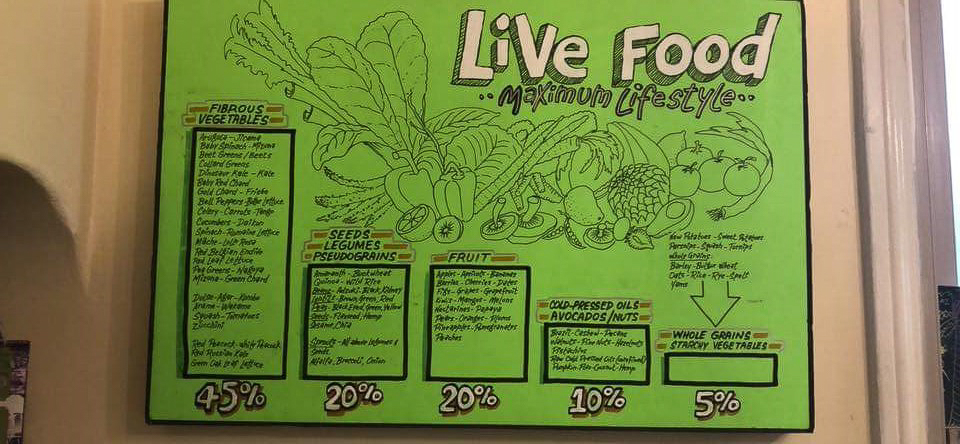 LiVe Food
..Maximum Lifestyle..
FIBROUS
VEGETABLES
Arugula - Jicama
Baby Spinach - Mizuna
Beet Greens / Beets
Collard Greens
Dinosaur Kale - Kale
Baby Red Chard
Gold Chard - Frisee
Bell Peppers - Lettuce
Celery - Carrots - Tango
Cucumbers - Daikon
Spinach - Romaine Lettuce
Mâche - Lolla Rosa
Red Belgian Endive
Red Leaf Lettuce
Pea Greens
Mizuna - Green Chard
Dulse - Agar - Kombu
Arame - Wakame
Squash - Tomatoes
Zucchini
Red Russian Kale
Green Oak Leaf Lettuce
45%
SEEDS
LEGUMES
PSEUDOGRAINS
Amaranth - Buckwheat
Quinoa - Wild Rice
Beans - Adzuki, Black, Kidney
Lentils - Brown, Green, Red
Peas - Black Eyed, Green, Yellow
Seeds - Flaxseed, Hemp
Sesame, Chia
Sprouts - All above Legumes &
Seeds
Alfalfa, Broccoli, Onion
20%
FRUIT
Apples - Apricots - Bananas
Berries - Cherries - Dates
Figs - Grapes - Grapefruit
Kiwis - Mangos - Melons
Nectarines - Papaya
Pears - Oranges - Plums
Pineapples - Pomegranates
Peaches
20%
COLD-PRESSED OILS
AVOCADOS/NUTS
Brazil - Cashew - Pecans
Walnuts - Pine Nuts - Hazelnuts
Pistachios
Raw Cold Pressed Oils (unrefined)
Pumpkin - Coconut - Hemp
10%
New Potatoes - Sweet Potatoes
Parsnips - Squash - Turnips
Whole Grains:
Barley - Bulgur wheat
Oats - Rice - Rye - Spelt
Yams
WHOLE GRAINS
STARCHY VEGETABLES
5%